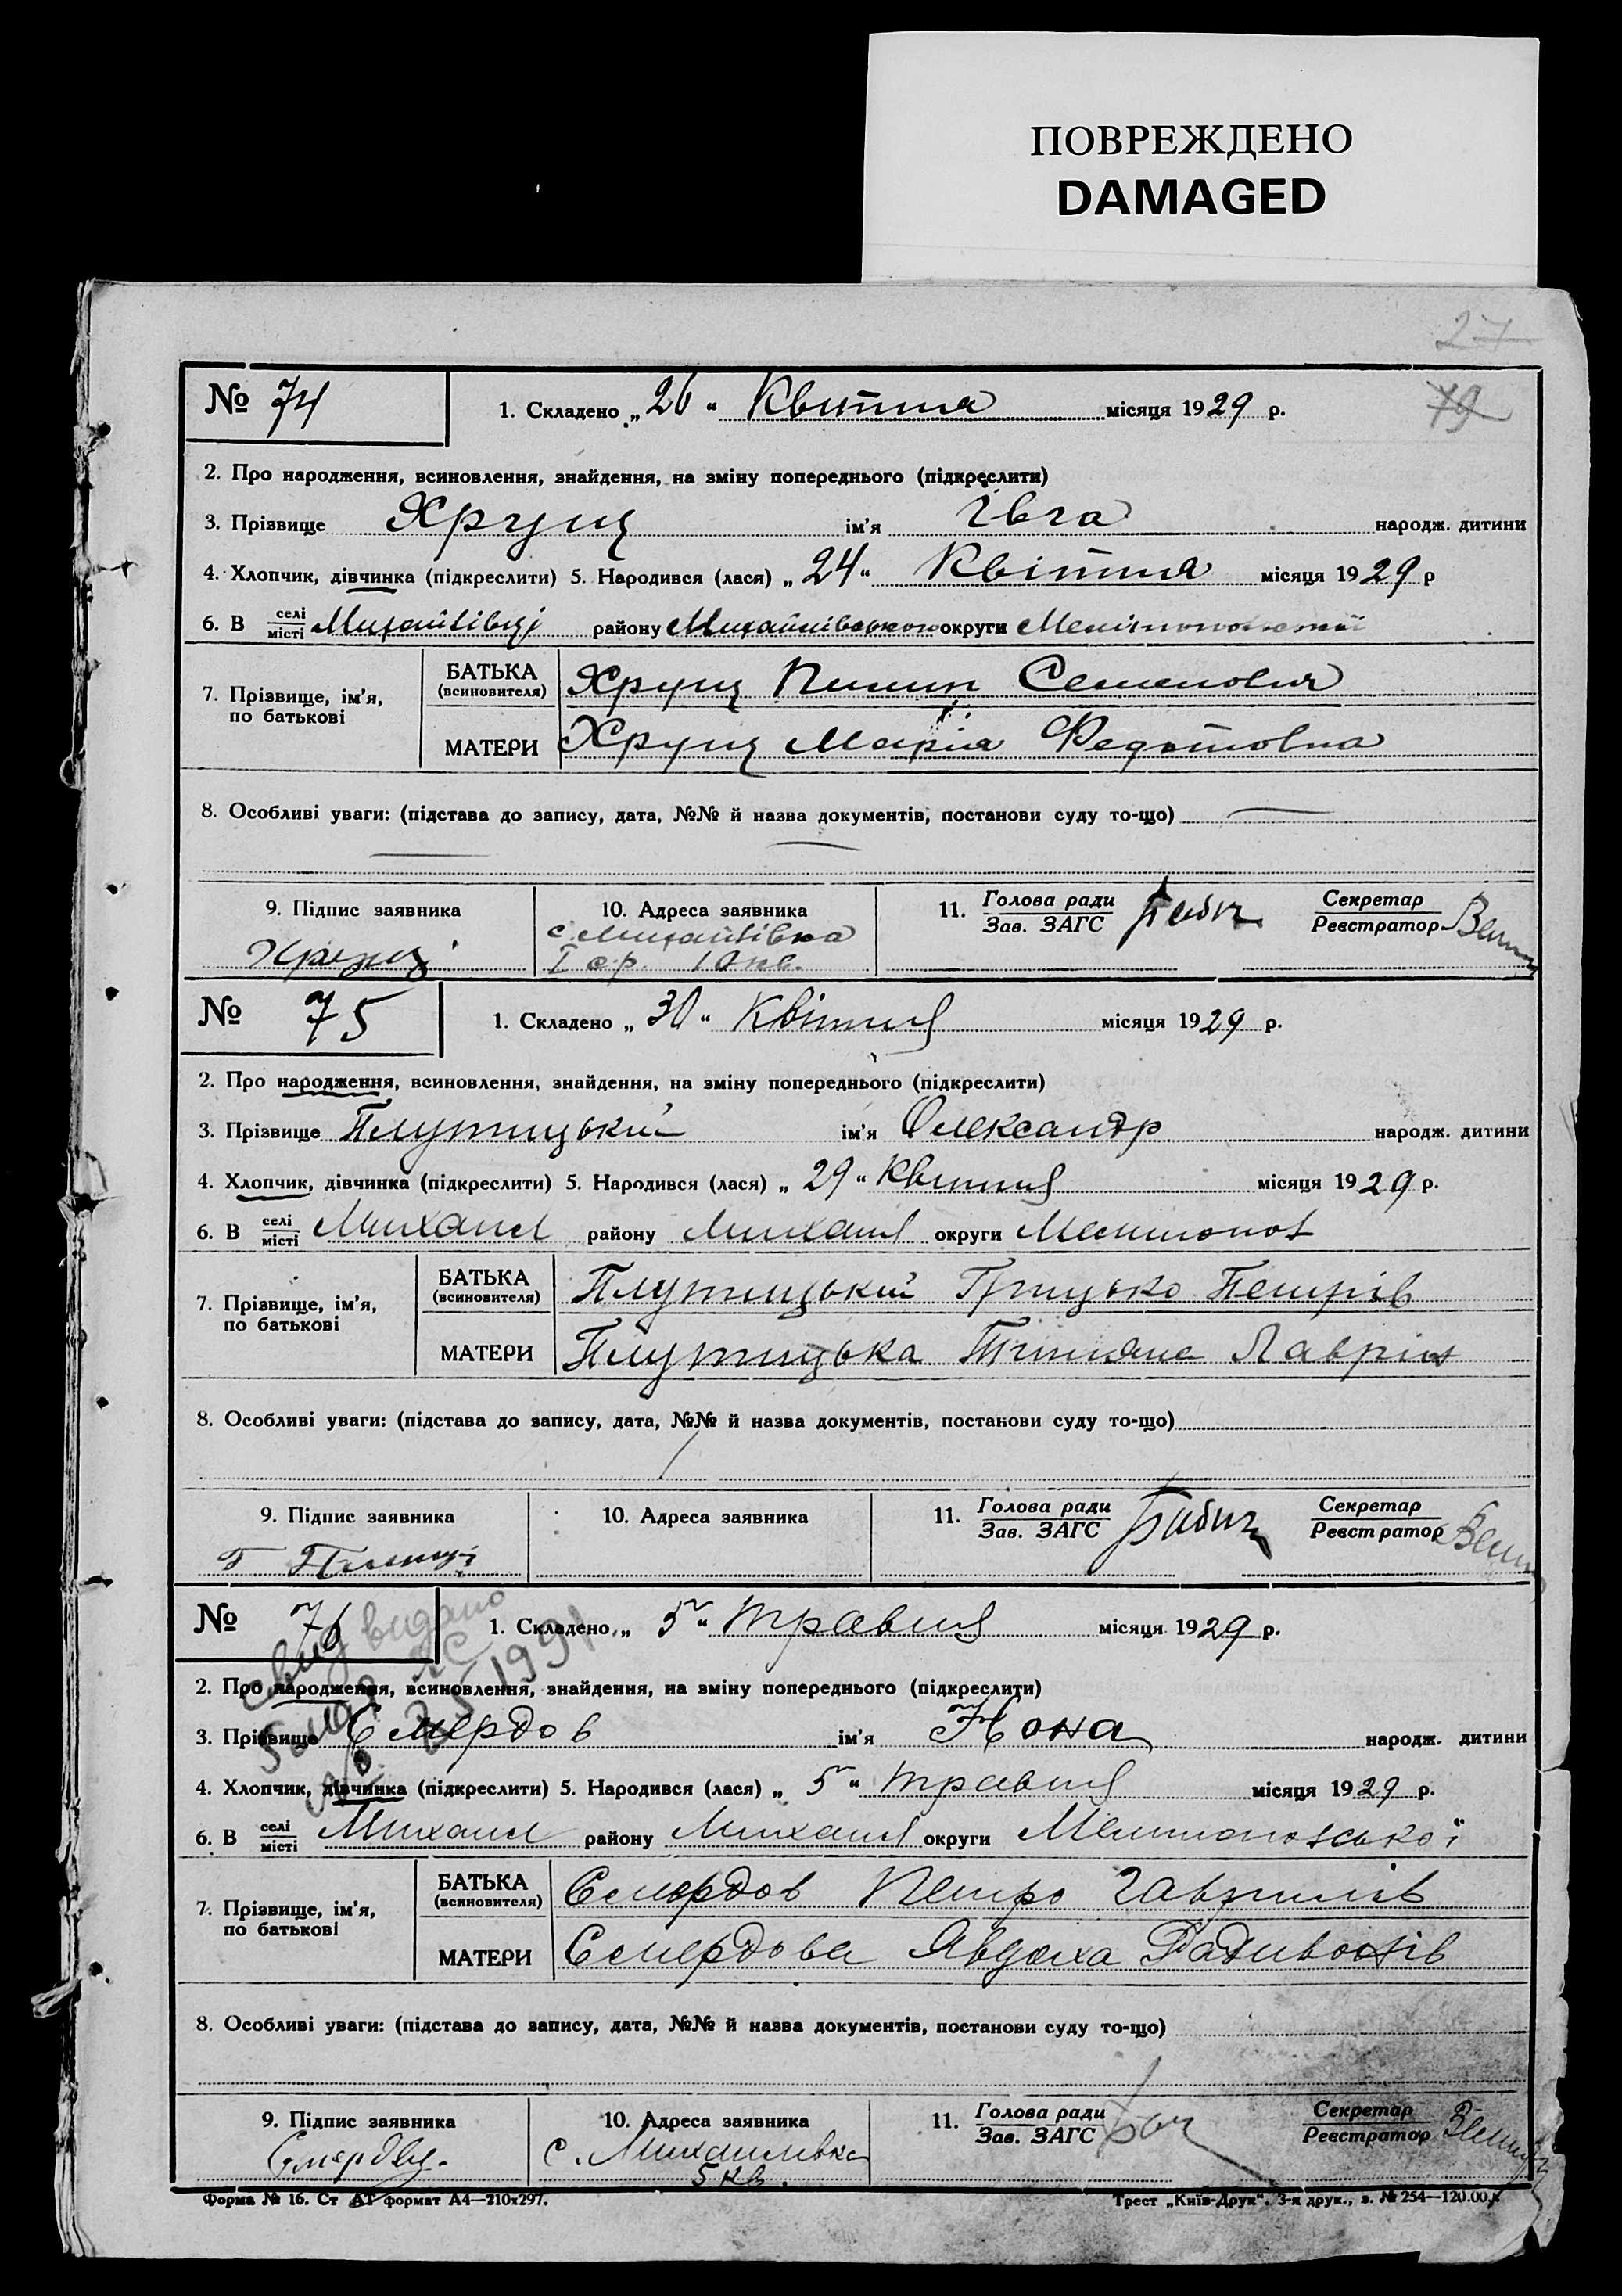 ПОВРЕЖДЕНО
DAMAGED
27
79
№ 74 1. Складено „ 26 “ Квітня місяця 1929 р.
2. Про народження, всиновлення, знайдення, на зміну попереднього (підкреслити)
3. Прізвище Хрущ ім'я Івга народж. дитини
4. Хлопчик, дівчинка (підкреслити) 5. Народився (лася) „ 24 “ Квітня місяця 1929 р
6. В селі місті Михайлівці району Михайлівського округи Мелітопольської
7. Прізвище, ім'я, по батькові
БАТЬКА (всиновителя) Хрущ Пилип Семенович
МАТЕРИ Хрущ Марія Федотовна
8. Особливі уваги: (підстава до запису, дата, №№ й назва документів, постанови суду то-що)
9. Підпис заявника Хрущ
10. Адреса заявника с. Михайлівка
I с.р. 10 кв.
11. Голова ради Зав. ЗАГС Бабич Секретар Реєстратор
№ 75 1. Складено „ 30 “ Квітня місяця 1929 р.
2. Про народження, всиновлення, знайдення, на зміну попереднього (підкреслити)
3. Прізвище Плутицький ім'я Олександр народж. дитини
4. Хлопчик, дівчинка (підкреслити) 5. Народився (лася) „ 29 “ Квітня місяця 1929 р.
6. В селі місті Михайл району Михайл округи Мелітопол
7. Прізвище, ім'я, по батькові
БАТЬКА (всиновителя) Плутицький Грицько Петрів
МАТЕРИ Плутицька Тетяна Лаврін
8. Особливі уваги: (підстава до запису, дата, №№ й назва документів, постанови суду то-що)
9. Підпис заявника
10. Адреса заявника
11. Голова ради Зав. ЗАГС Бабич Секретар Реєстратор
№ 76 1. Складено „ 5 “ травня місяця 1929 р.
видано
1991
2. Про народження, всиновлення, знайдення, на зміну попереднього (підкреслити)
3. Прізвище Смердов ім'я Нона народж. дитини
4. Хлопчик, дівчинка (підкреслити) 5. Народився (лася) „ 5 “ травня місяця 1929 р.
6. В селі місті Михайл району Михайл округи Мелітопольської
7. Прізвище, ім'я, по батькові
БАТЬКА (всиновителя) Смердов Петро Гаврилів
МАТЕРИ Смердова Явдоха Радивонів
8. Особливі уваги: (підстава до запису, дата, №№ й назва документів, постанови суду то-що)
9. Підпис заявника
10. Адреса заявника с. Михайлівка
5 кв.
11. Голова ради Зав. ЗАГС Секретар Реєстратор
Форма № 16. Ст АТ формат А4—210х297. Трест „Київ-Друк“. 3-я друк., з. № 254—120.00.